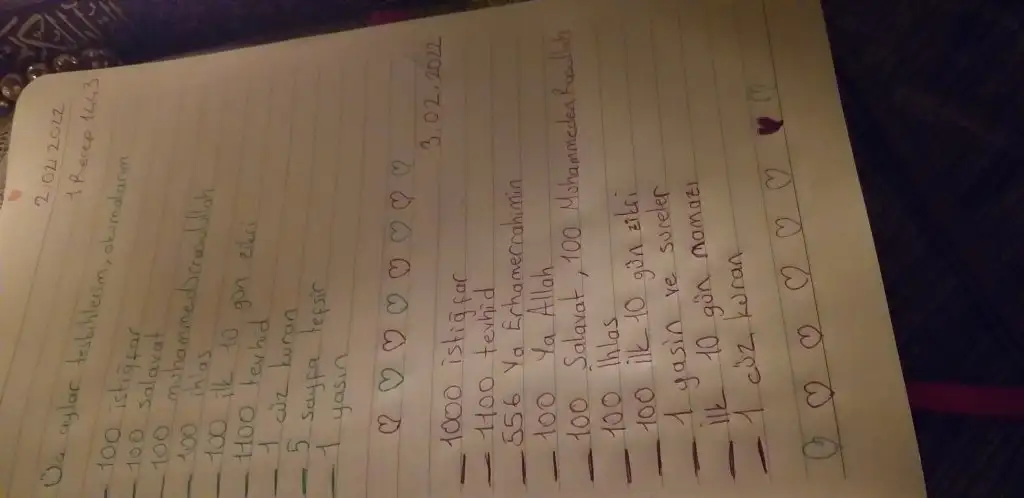 2.02.2022
1 Recep 1443
Üç aylar tesbihlerim, okumalarım
- 100 istiğfar
- 100 salavat
- 100 muhammedürrasulullah
- 100 ihlas
- 100 ilk 10 gün zikri
- 1100 tevhid
- 1 cüz kuran
- 5 sayfa tefsir
- 1 yasin
3.02.2022
- 1000 istiğfar
- 1100 tevhid
- 556 Ya Erhamerrahimin
- 100 Ya Allah
- 100 Salavat, 100 Muhammeden Rasullah
- 100 Ihlas
- 100 ilk 10 gün zikri
- 1 yasin ve sureler
- ilk 10 gün namazı
- 1 cüz kuran